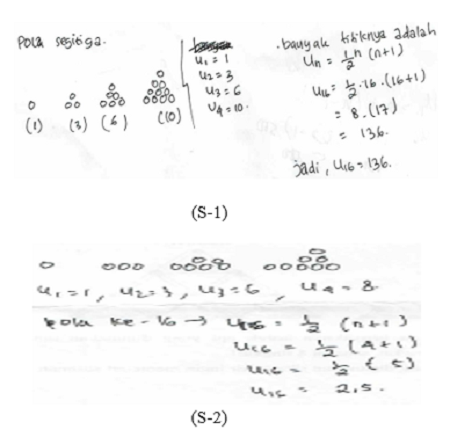 Pola segitiga.
(1) (3) (6) (10)
U₁ = 1
U₂ = 3
U₃ = 6
U₄ = 10.
. banyak titiknya adalah
Un = ½ n (n+1)
U₁₆ = ½ . 16 . (16+1)
= 8 . (17)
= 136.
jadi, U₁₆ = 136.
(S-1)
U₁ = 1, U₂ = 3, U₃ = 6, U₄ = 8
Pola ke-16 → = ½ (n+1)
U₁₆ = ½ (4+1)
U₁₆ = ½ (5)
= 2,5.
(S-2)